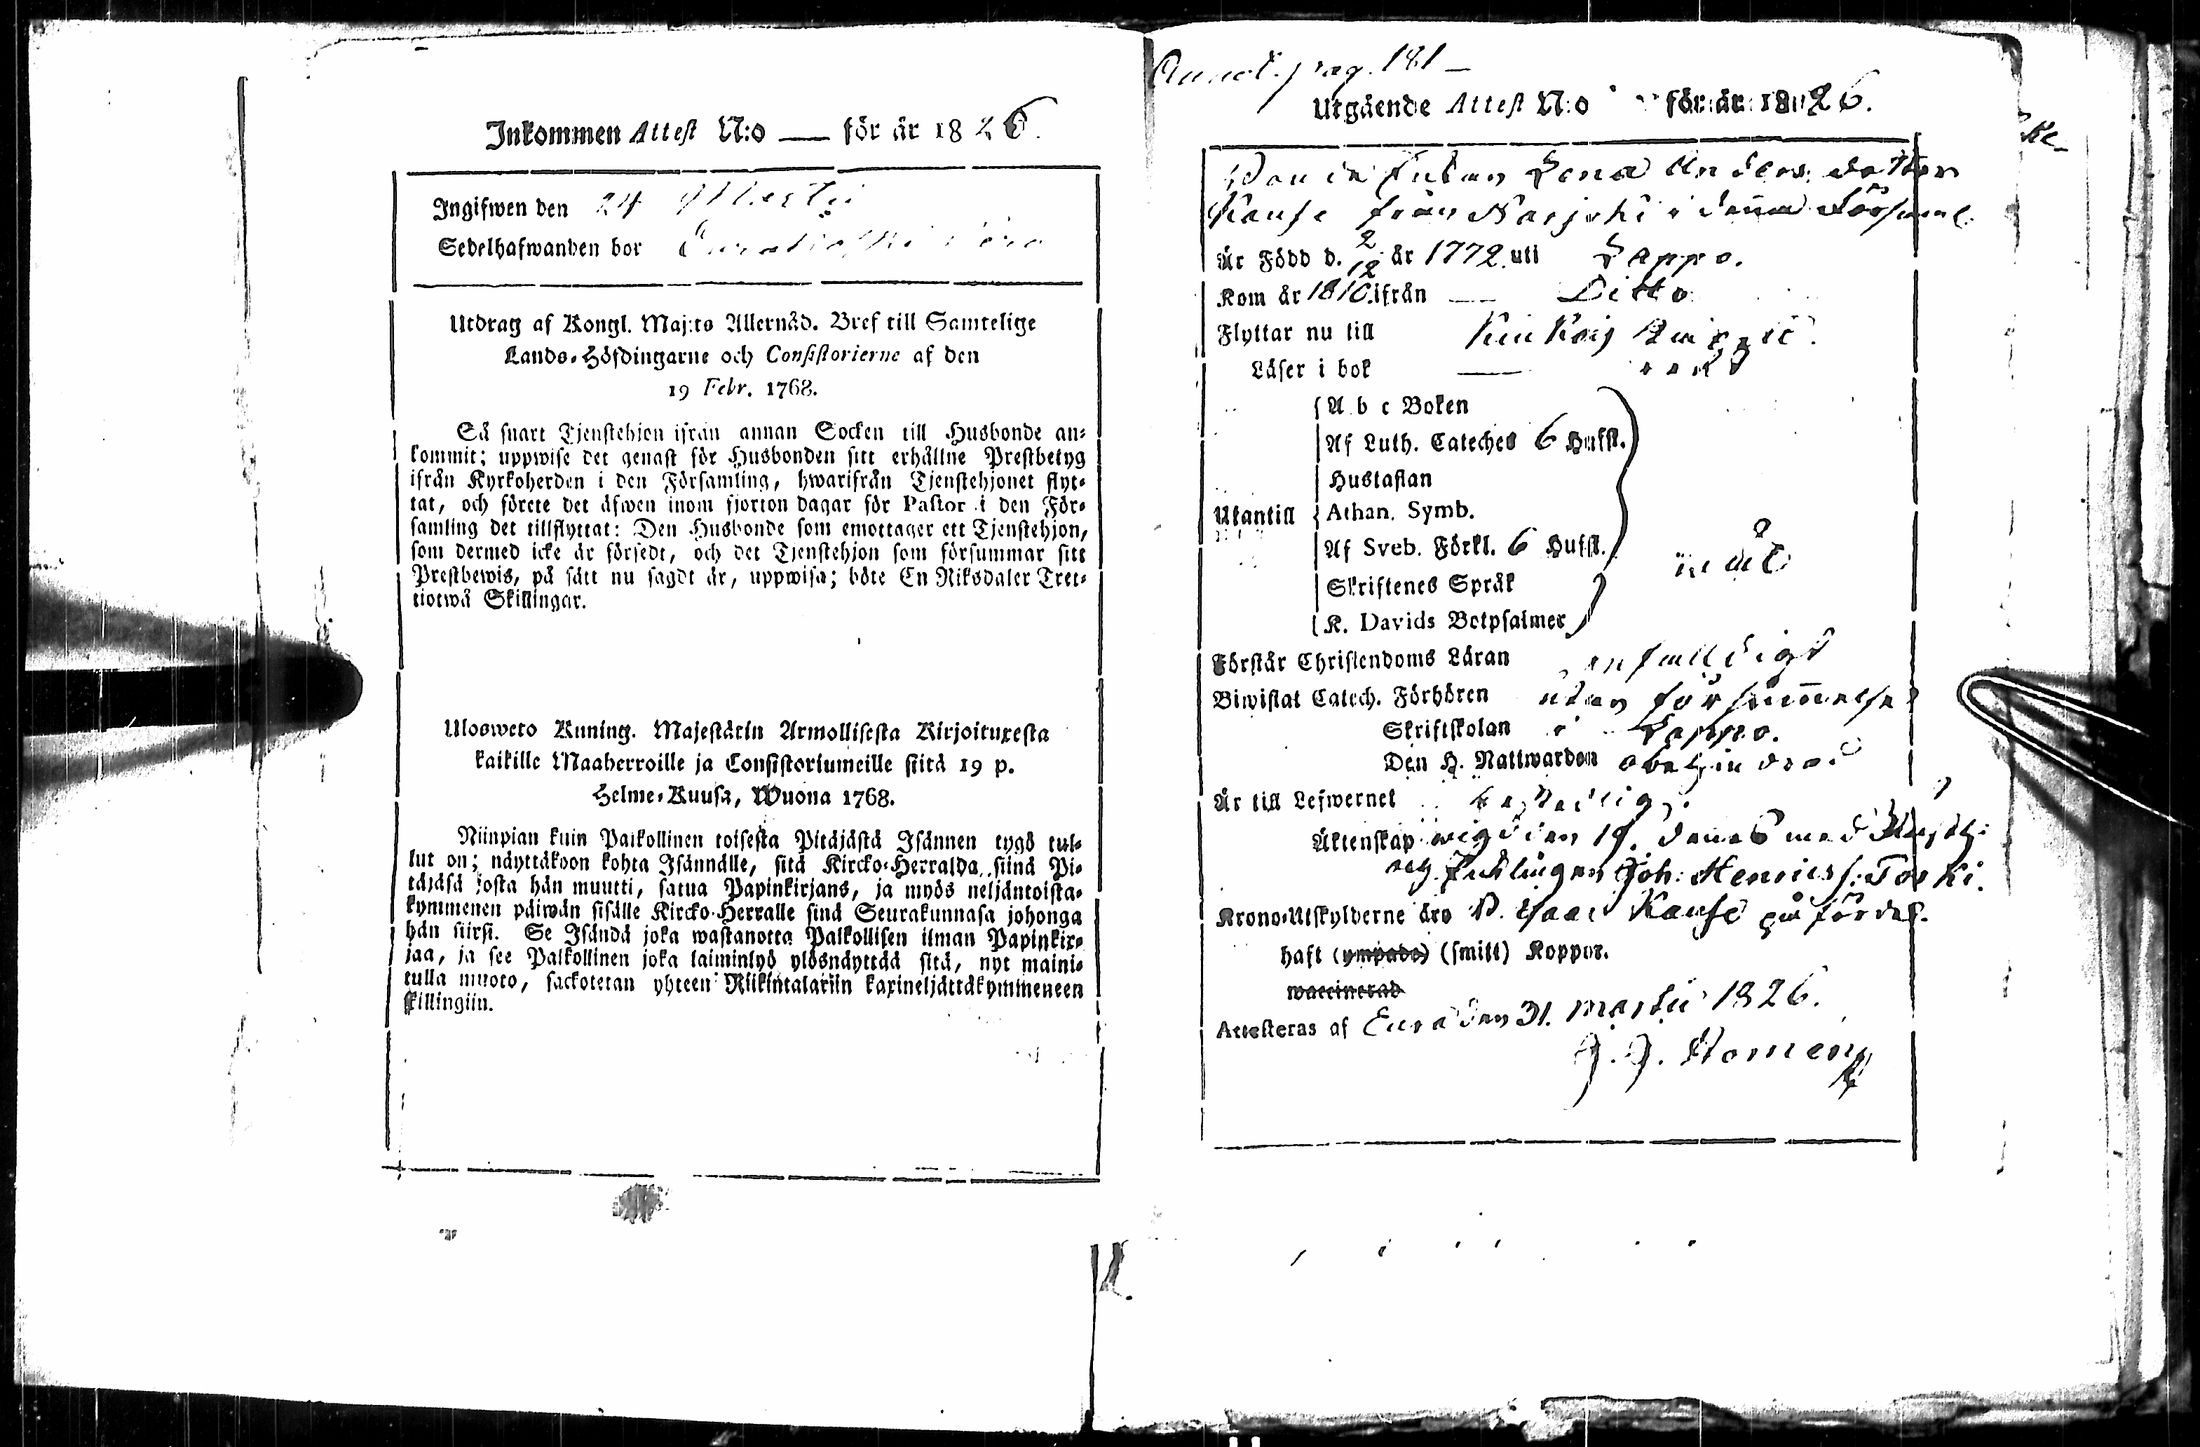 Inkommen Attest N:o — för år 1826.
Ingifwen den 24
Sedelhafwanden bor
Utdrag af Kongl. Maj:ts Allernåd. Bref till Samtelige
Lands-Höfdingarne och Consistorierne af den
19 Febr. 1768.
Så snart Tjenstehjon ifrån annan Socken till Husbonde an-
kommit; uppwise det genast för Husbonden sitt erhållne Prestbetyg
ifrån Kyrkoherden i den Församling, hwarifrån Tjenstehjonet flyt-
tat, och förete det äfwen inom fjorton dagar för Pastor i den För-
samling det tillflyttat: Den Husbonde som emottager ett Tjenstehjon,
som dermed icke är försedt, och det Tjenstehjon som försummar sitt
Prestbewis, på sätt nu sagdt är, uppwisa; böte En Riksdaler Tret-
tiotwå Skillingar.
Ulosweto Kuning. Majestätin Armollisesta Kirjoituxesta
kaikille Maaherroille ja Consistoriumeille siitä 19 p.
Helme-Kuusa, Wuona 1768.
Niinpian kuin Palkollinen toisesta Pitäjästä Isännen tygö tul-
lut on; näyttäkoon kohta Isännälle, sitä Kircko-Herralda, siinä Pi-
täjäsä josta hän muutti, satua Papinkirjans, ja myös neljäntoista-
kymmenen päiwän sisälle Kircko-Herralle sinä Seurakunnasa johonga
hän siirsi. Se Isändä joka wastanotta Palkollisen ilman Papinkir-
jaa, ja see Palkollinen joka laiminlyö ylösnäyttää sitä, nyt maini-
tulla muoto, sackotetan yhteen Riikintalariin kaxineljättäkymmeneen
skillingiin.
Annot. pag. 181 —
Utgående Attest N:o för år 1826.
Lena Anders dotter
Kause från i denna Församl.
Är Född d. 2/12 år 1772 uti Lappo.
Kom år 1810 ifrån — Ditto
Flyttar nu till
Läser i bok —
Utantill
A b c Boken
Af Luth. Cateches 6 Hufst.
Hustaflan
Athan. Symb.
Af Sveb. Förkl. 6 Hufst.
Skriftenes Språk
K. Davids Botpsalmer
Förstår Christendoms Läran enfalldigt
Biwistat Catech. Förhören utan försummelse
Skriftskolan i Lappo.
Den H. Nattwarden obehindrad
Är till Lefwernet
Äktenskap wigd den 19. dennes med
Joh: Henricss: Torki.
Krono-Utskylderne äro Kause påförde.
haft (ympade) (smitt) Koppor.
waccinerad
Attesteras af Eura den 31. Martii 1826.
J. J. Homén